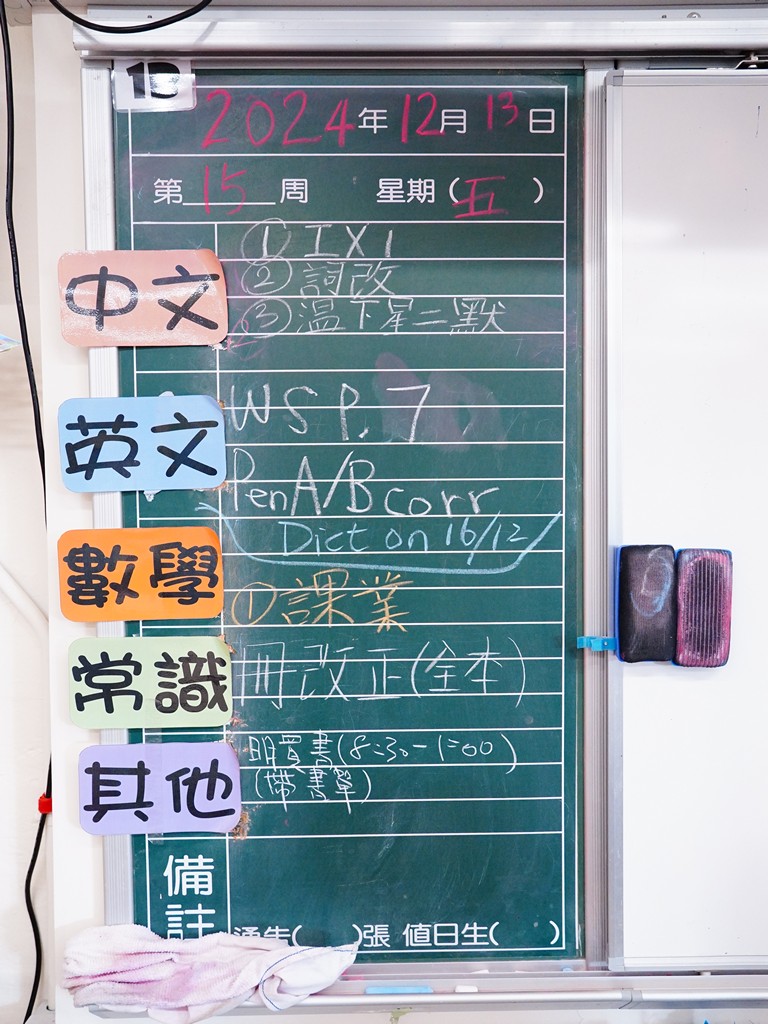 1D
2024年12月13日
第15周 星期(五)
中文
①IX1
②詞改
③温下星二默
英文
WS P.7
Pen A/B corr
Dict on 16/12
數學
①課業
常識
冊改正(全本)
其他
明買書(8:30-1:00)
(帶書單)
備註
通告( )張 值日生( )